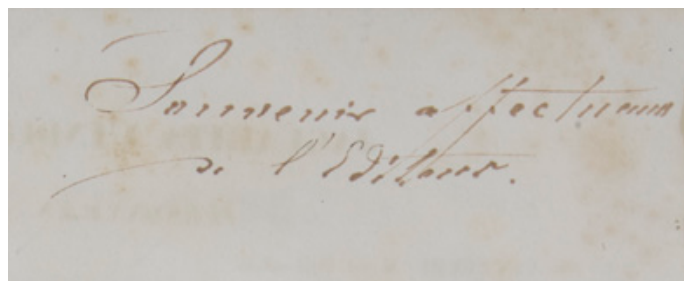 Souvenir affectueux
de l'Editeur.